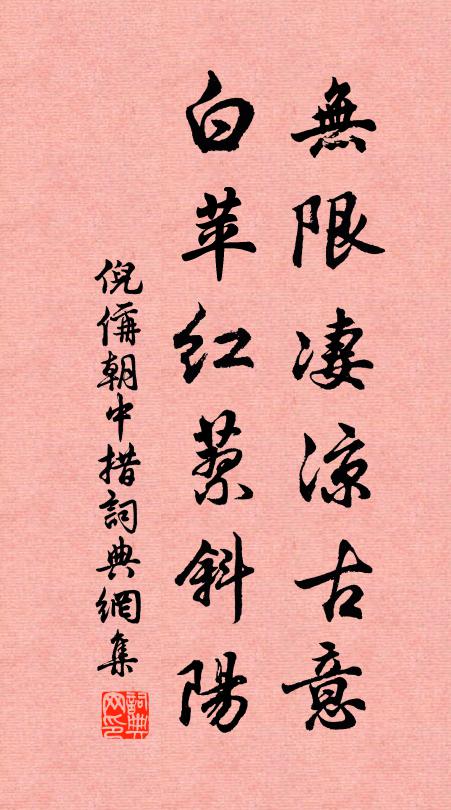 無限凄涼古意
白苹紅蓼斜陽
倪偁朝中措詞典網集
詞典网印